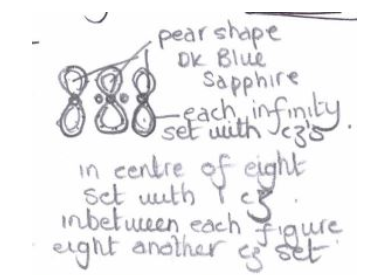 pear shape
DK Blue
Sapphire
each infinity
set with cz's.
in centre of eight
set with 1 cz
inbetween each figure
eight another cz set